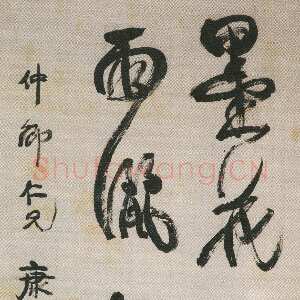 墨花
雨氣
仲卿仁兄 康
ShufaWang.CN